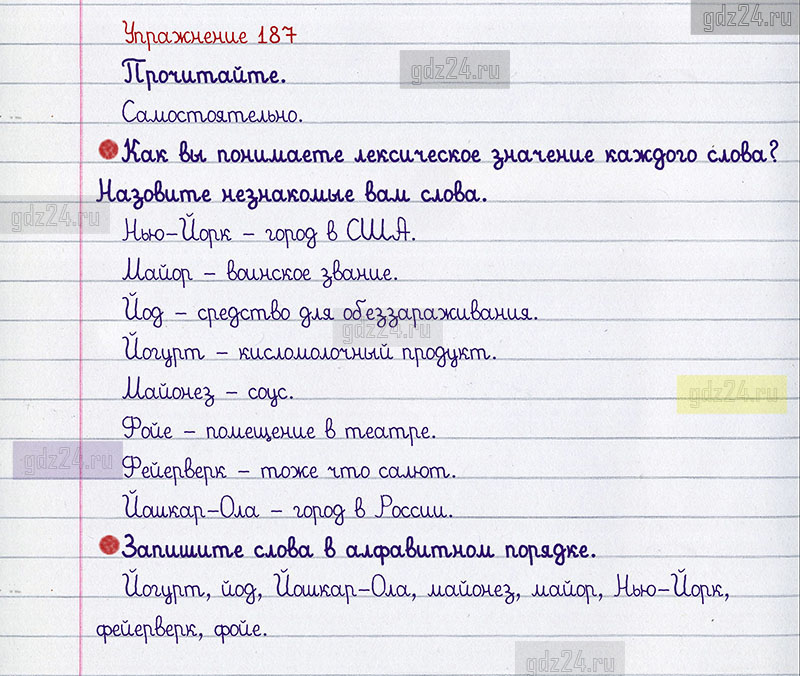 gdz24.ru
Упражнение 187
gdz24.ru
Прочитайте.
Самостоятельно.
Как вы понимаете лексическое значение каждого слова?
Назовите незнакомые вам слова.
gdz24.ru
Нью-Йорк – город в США.
Майор – воинское звание.
Йод – средство для обеззараживания.
gdz24.ru
Йогурт – кисломолочный продукт.
Майонез – соус.
gdz24.ru
Фойе – помещение в театре.
gdz24.ru
Фейерверк – тоже что салют.
Йошкар-Ола – город в России.
Запишите слова в алфавитном порядке.
Йогурт, йод, Йошкар-Ола, майонез, майор, Нью-Йорк,
фейерверк, фойе.
gdz24.ru